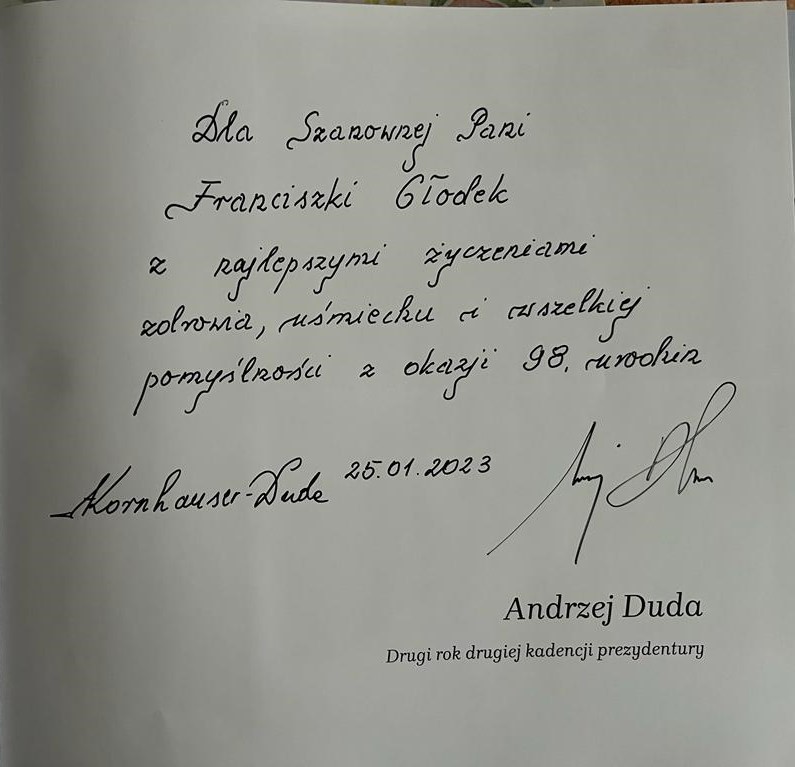 Dla Szanownej Pani
Franciszki Głodek
z najlepszymi życzeniami
zdrowia, uśmiechu i wszelkiej
pomyślności z okazji 98. urodzin
AKornhauser-Duda 25.01.2023
Andrzej Duda
Drugi rok drugiej kadencji prezydentury